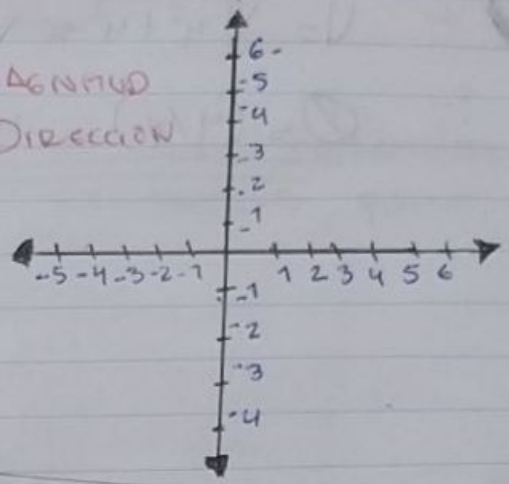 6
AGNITUD
5
4
DIRECCION
3
2
1
-5 -4 -3 -2 -1 1 2 3 4 5 6
-1
-2
-3
-4